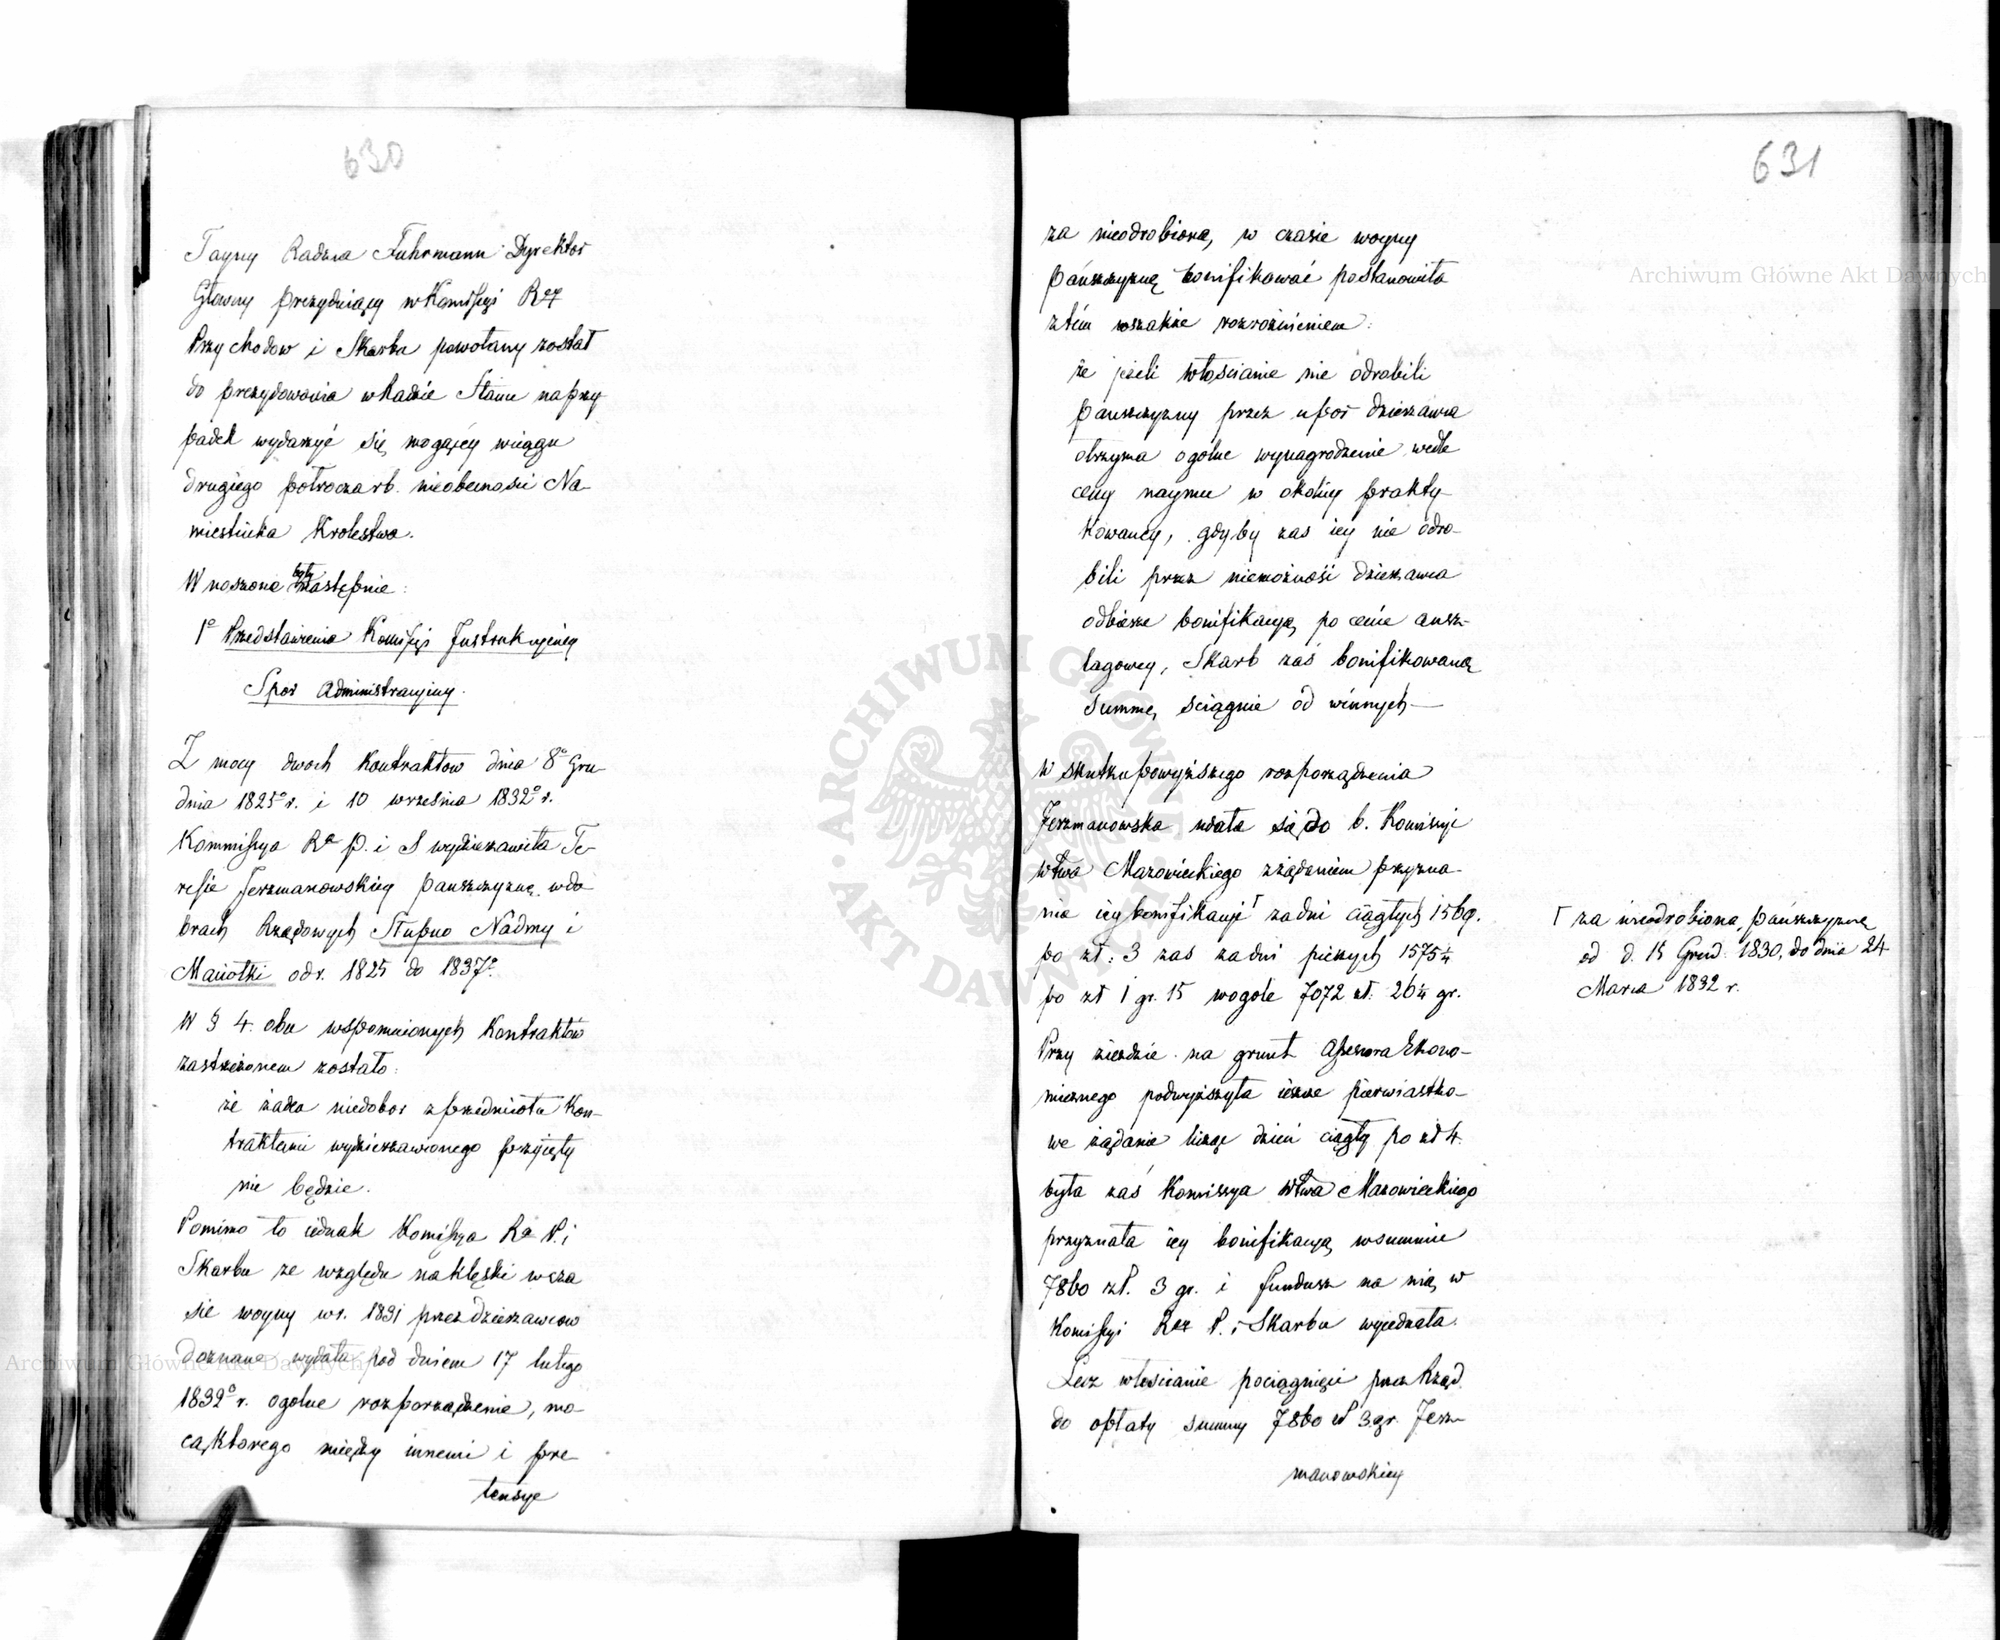 630
Tayny Radzca Fuhrmann Dyrektor
Głowny prezyduiący w Kommissyi Rząd.
Przychodow i Skarbu powołany został
do prezydowania w Radzie Stanu na przy
padek wydarzyć się mogącey wciągu
drugiego połrocza r b. nieobecności Na-
miestnika Krolestwa.
Wnoszone były następnie:
1o Przedstawienia Komissyi Instrukcyiney
Spor Administracyiny.
Z mocy dwoch kontraktow dnia 8o Gru
dnia 1825o r. i 10 września 1832o r.
Kommissya Ra P. i S wydzierzawiła Te-
ressie Jerzmanowskiey pańszczyznę w do
brach Rządowych Słupno Nadmy i
Maciołki od r. 1825 do 1837o.
W § 4. obu wspomnionych kontraktów
zastrzeżonem zostało:
że żaden niedobor z przedmiotu kon-
traktami wydzierzawionego przyięty
nie będzie.
Pomimo to iednak Komissya Ra P. i
Skarbu ze względu na klęski w cza
sie woyny w r. 1831 przez dzierzawcow
doznane wydała pod dniem 17 lutego
1832o r. ogolne rozporządzenie, mo-
cą ktorego między innemi i pre-
tensye
631
za nieodrobioną, w czasie woyny
pańszczyznę bonifikować postanowiła
z tém wszakże rozroźnieniem:
że jeżeli włoscianie nie odrobili
pańszczyzny przez upor dzierzawca
otrzyma ogolne wynagrodzenie wedle
ceny naymu w okolicy prakty-
kowaney, gdyby zas iey nie odro-
bili przez niemożność dzierzawca
odbierze bonifikacyą po cenie ansz-
lagowey, Skarb zaś bonifikowaną
summę ściągnie od winnych —
W skutku powyższego rozporządzenia
Jerzmanowska udała się do b. Komissyi
wtwa Mazowieckiego z żądaniem przyzna-
nia iey bonifikacyi Γ za dni ciągłych 1569.
po zł: 3 zas za dni pieszych 1575¼
po zł 1 gr. 15 wogole 7072 zł. 26¼ gr.
Γ za nieodrobioną pańszczyznę
od d. 15 Grud. 1830, do dnia 24
Marca 1832 r.
Przy zieździe na grunt Assesora Ekono-
micznego podwyższyła ieszcze pierwiastko-
we żądanie licząc dzień ciągły po zł 4.
była zaś Komissya wtwa Mazowieckiego
przyznała iey bonifikacyą w summie
7860 zł. 3 gr. i fundusz na nią w
Komissyi Rząd P. i Skarbu wyiednała.
Lecz włościanie pociągnięci przez Rząd
do opłaty summy 7860 zł 3 gr. Jerz-
manowskiey
Archiwum Główne Akt Dawnych
Archiwum Główne Akt Dawnych
ARCHIWUM GŁÓWNE AKT DAWNYCH